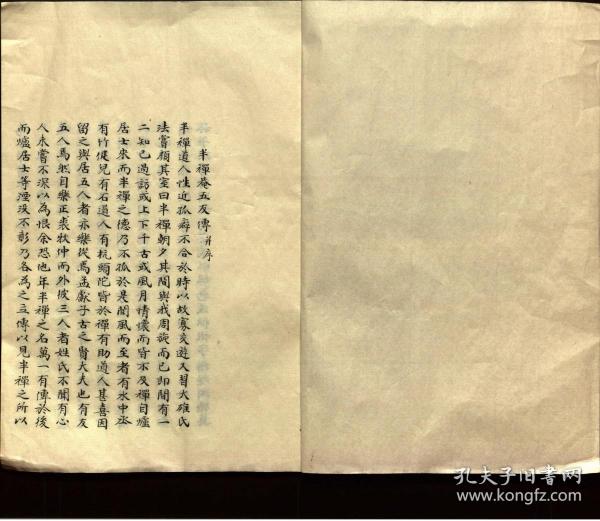 半禪庵五友傳 并序
半禪道人性近孤癖不合於時以故寡交遊又習大雄氏
法嘗顏其室曰半禪朝夕其間與我周旋而已即間有一
二知己過訪或上下千古或風月情懷而皆不及禪自爐
居士來而半禪之德乃不孤於是聞風而至者有水中丞
有竹侍兒有石道人有杭頭陀皆於禪有助道人甚喜因
留之與居五人者亦樂從焉孟獻子古之賢大夫也有友
五人焉然自樂正裘牧仲而外彼三人者姓氏不聞有心
人未嘗不深以為恨余恐他年半禪之名萬一有傳於後
而爐居士等湮沒不彰乃各為之立傳以見半禪之所以
孔夫子旧书网
www.kongfz.com